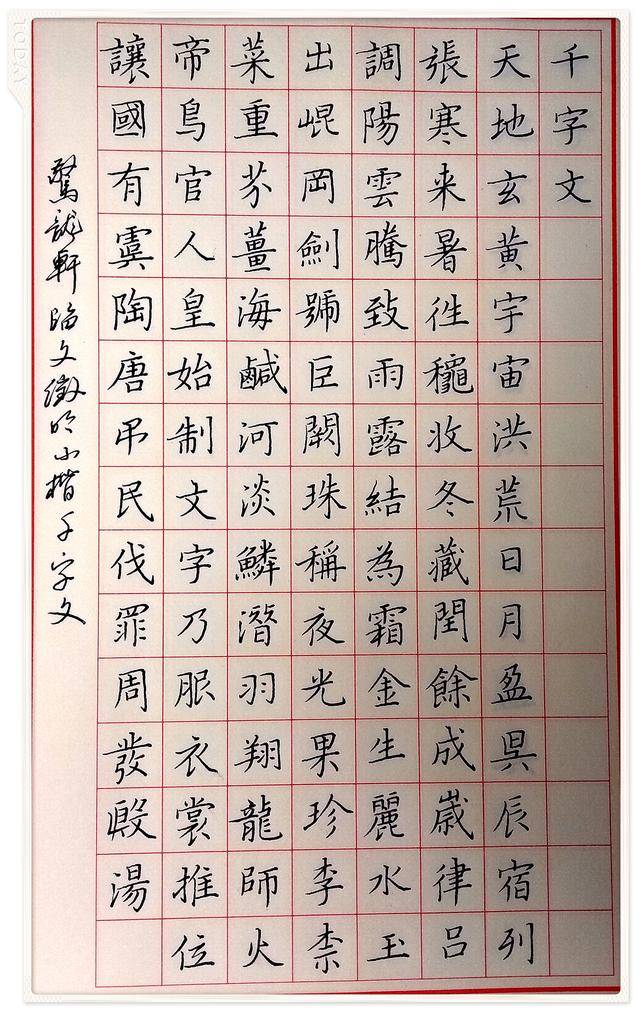 千字文
天地玄黃宇宙洪荒日月盈昃辰宿列
張寒来暑徃穐收冬藏閏餘成歲律呂
調陽雲騰致雨露結為霜金生麗水玉
出崐岡劍號巨闕珠稱夜光果珍李柰
菜重芥薑海鹹河淡鱗潛羽翔龍師火
帝鳥官人皇始制文字乃服衣裳推位
讓國有虞陶唐弔民伐罪周發殷湯
驚龍軒臨文徵明小楷千字文
TODAY